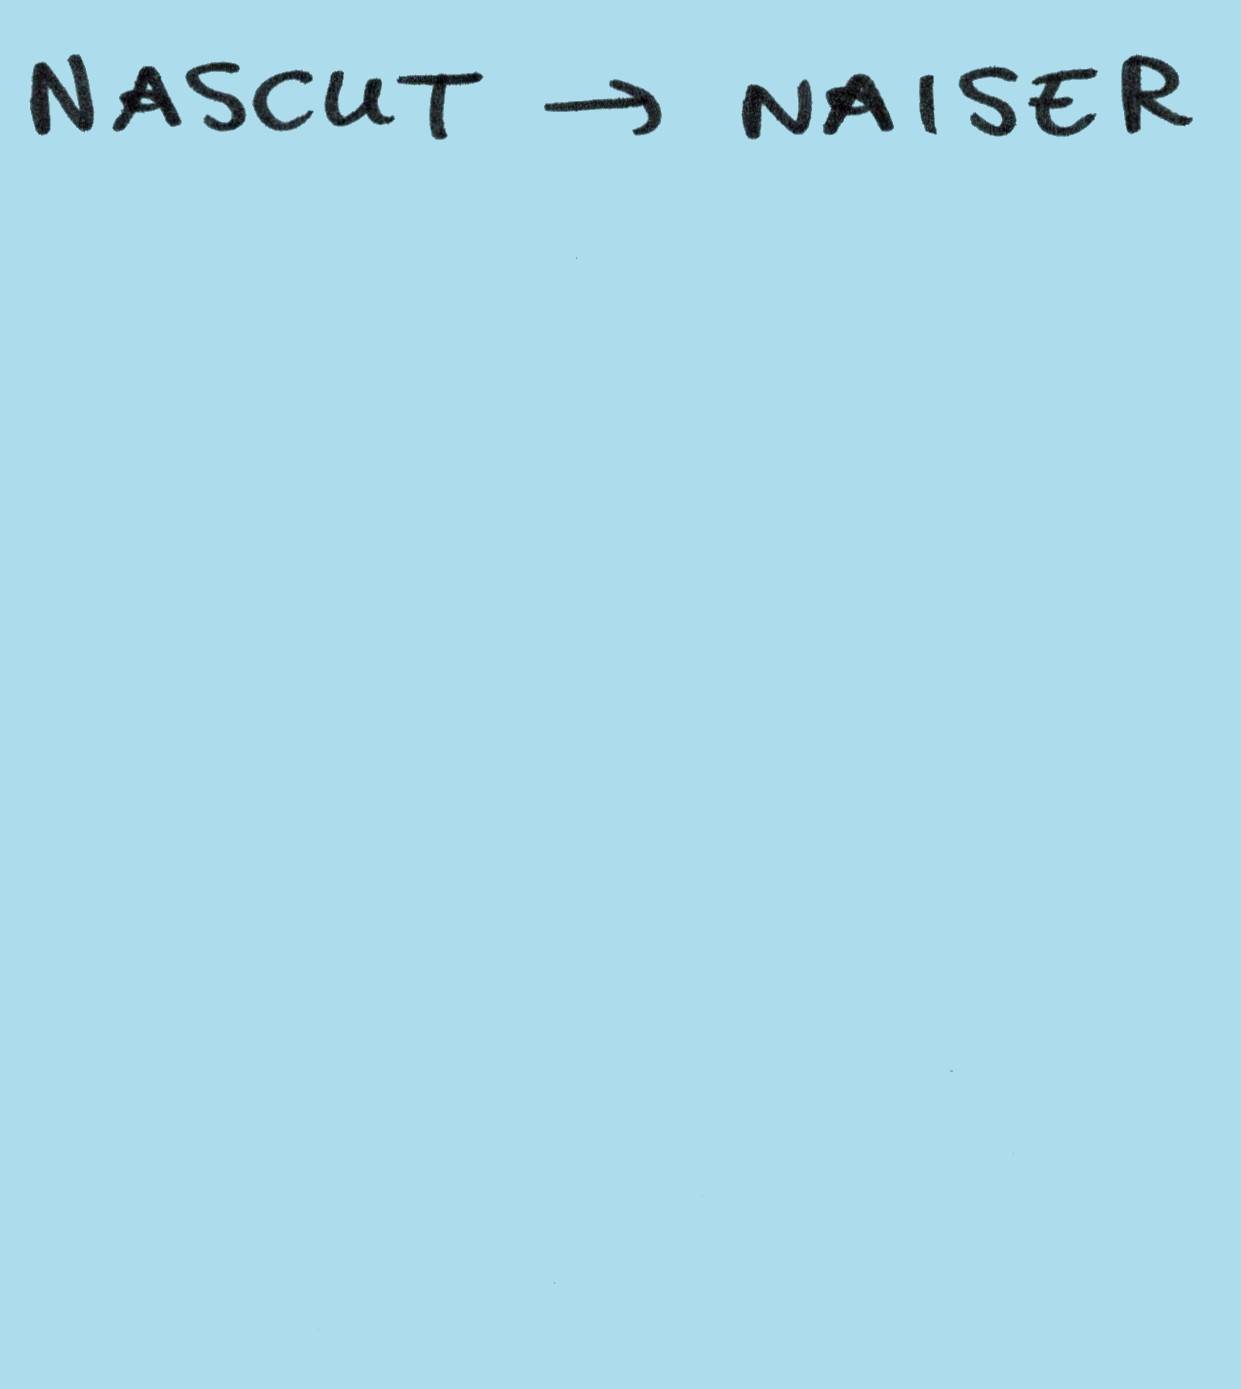 NASCUT → NAISER